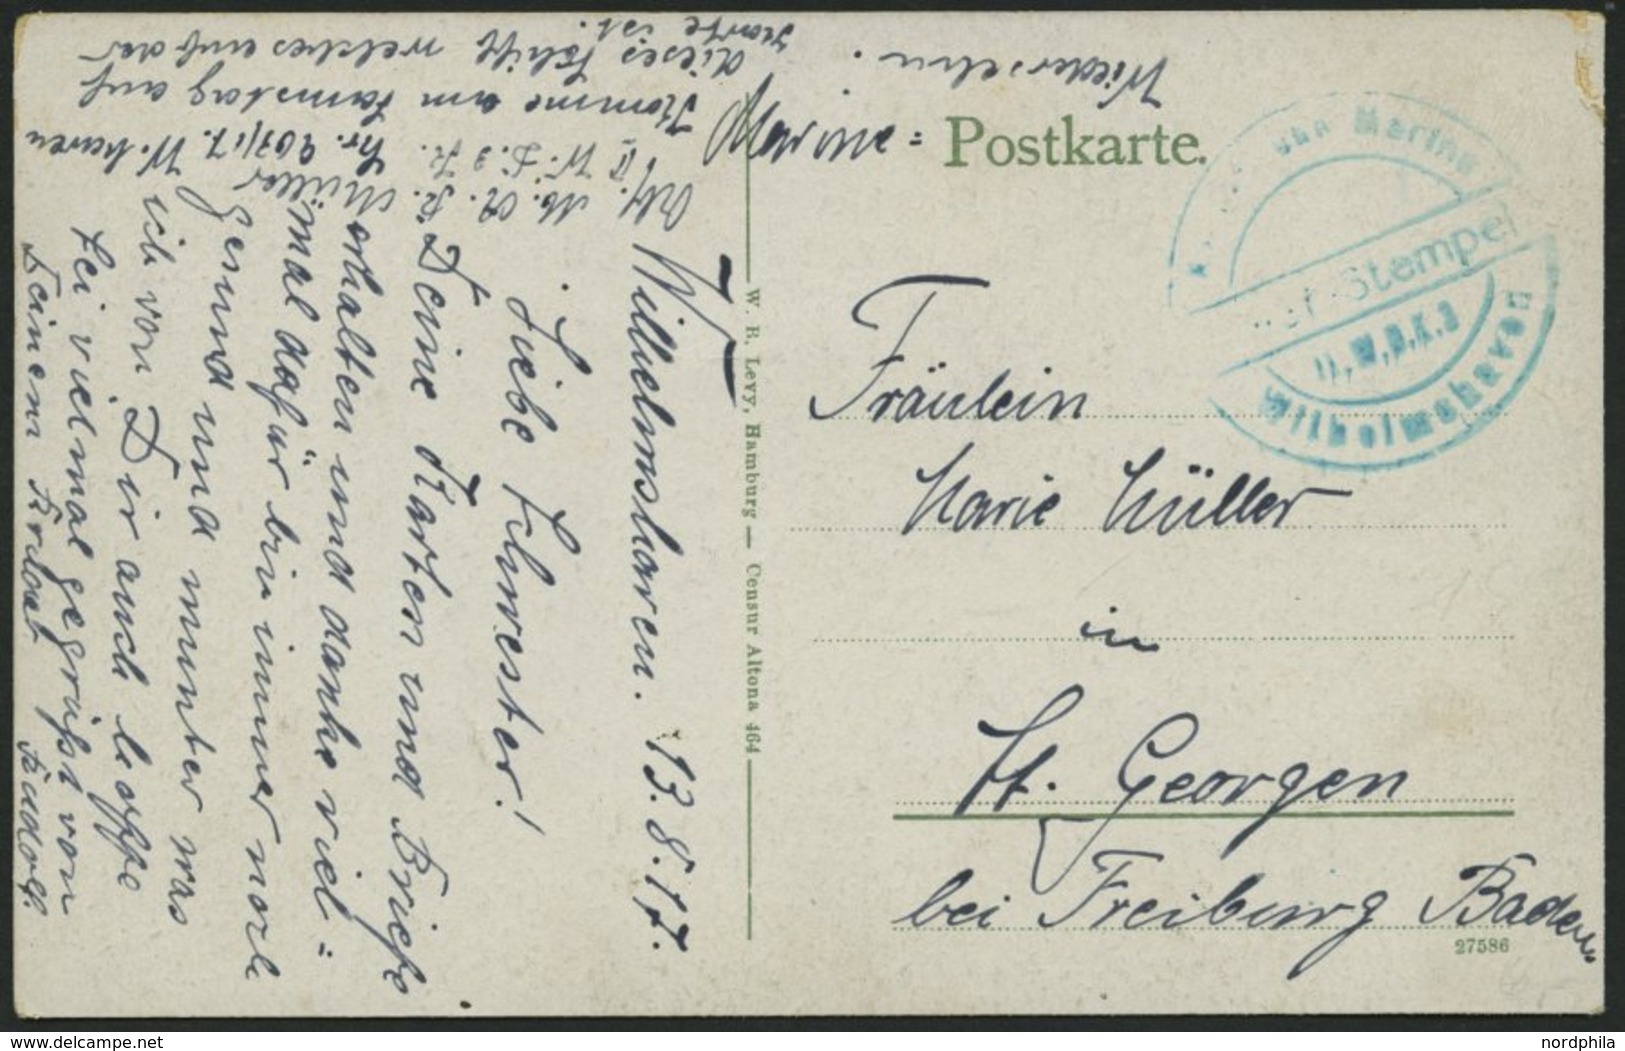 Marine = Postkarte.
Fräulein
Marie Müller
in
St. Georgen
bei Freiburg Baden
27586
Marine
Brief-Stempel
II.W.D.K.3
Wilhelmshaven
W. R. Levy, Hamburg — Censur Altona 464
Wilhelmshaven. 13.8.17.
Liebe Schwester!
Deine Karten und Briefe
erhalten und danke viel=
mal dafür bin immer noch
gesund und munter was
ich von Dir auch hoffe
Sei vielmal gegrüßt von
Deinem Bruder Rudolf.
Müller
II W. D. 3 K.
Nr. 207/17. W. haven
Komme am Samstag auf
dieses Schiff welches auf der
Karte ist.
Wiedersehn.
nordphila
www.delcampe.net